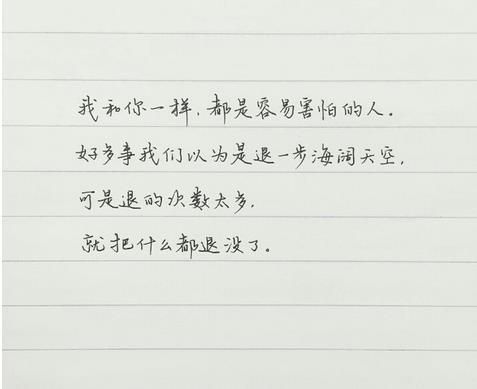 我和你一样,都是容易害怕的人。
好多事我们以为是退一步海阔天空,
可是退的次数太多,
就把什么都退没了。